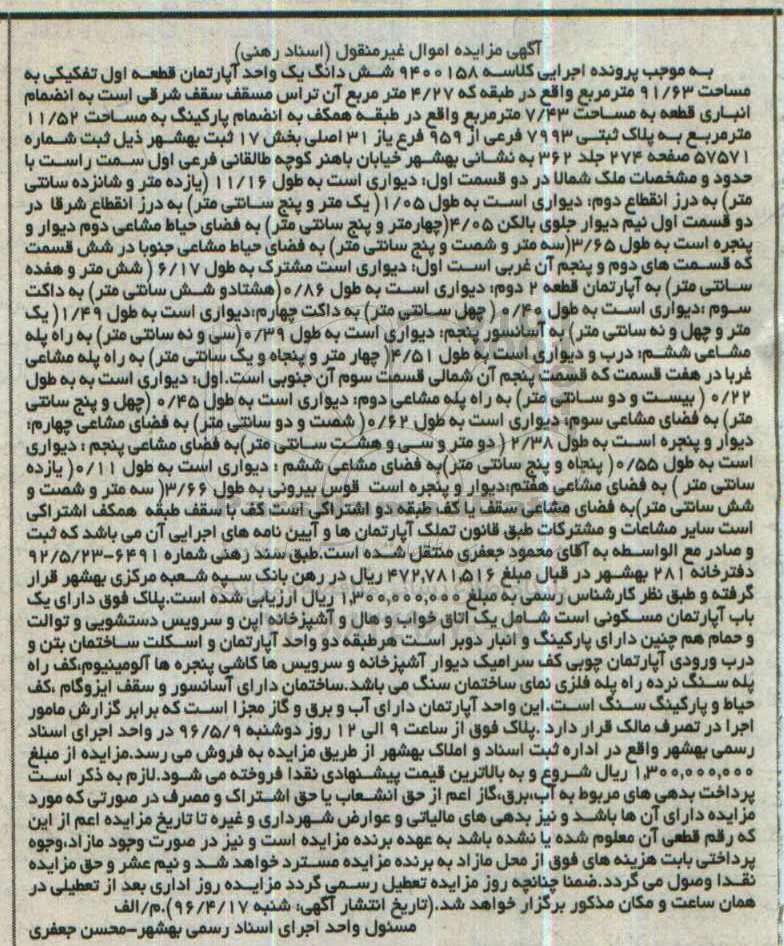 آگهی مزایده اموال غیرمنقول (اسناد رهنی)
به موجب پرونده اجرایی کلاسه ۹۴۰۰۱۵۸ شش دانگ یک واحد آپارتمان قطعه اول تفکیکی به
مساحت ۹۱/۶۳ مترمربع واقع در طبقه که ۴/۲۷ متر مربع آن تراس مسقف سقف شرقی است به انضمام
انباری قطعه به مساحت ۷/۴۳ مترمربع واقع در طبقه همکف به انضمام پارکینگ به مساحت ۱۱/۵۲
مترمربع به پلاک ثبتی ۷۹۹۳ فرعی از ۹۵۹ فرع یاز ۳۱ اصلی بخش ۱۷ ثبت بهشهر ذیل ثبت شماره
۵۷۵۷۱ صفحه ۲۷۴ جلد ۳۶۲ به نشانی بهشهر خیابان باهنر کوچه طالقانی فرعی اول سمت راست با
حدود و مشخصات ملک شمالا در دو قسمت اول: دیواری است به طول ۱۱/۱۶ (یازده متر و شانزده سانتی
متر) به درز انقطاع دوم: دیواری است به طول ۱/۰۵( یک متر و پنج سانتی متر) به درز انقطاع شرقا در
دو قسمت اول نیم دیوار جلوی بالکن ۴/۰۵(چهارمتر و پنج سانتی متر) به فضای حیاط مشاعی دوم دیوار و
پنجره است به طول ۳/۶۵(سه متر و شصت و پنج سانتی متر) به فضای حیاط مشاعی جنوبا در شش قسمت
که قسمت های دوم و پنجم آن غربی است اول: دیواری است مشترک به طول ۶/۱۷ ( شش متر و هفده
سانتی متر) به آپارتمان قطعه ۲ دوم: دیواری است به طول ۰/۸۶(هشتادو شش سانتی متر) به داکت
سوم :دیواری است به طول ۰/۴۰( چهل سانتی متر) به داکت چهارم:دیواری است به طول ۱/۴۹( یک
متر و چهل و نه سانتی متر) به آسانسور پنجم: دیواری است به طول ۰/۳۹(سی و نه سانتی متر) به راه پله
مشاعی ششم: درب و دیواری است به طول ۴/۵۱( چهار متر و پنجاه و یک سانتی متر) به راه پله مشاعی
غربا در هفت قسمت که قسمت پنجم آن شمالی قسمت سوم آن جنوبی است.اول: دیواری است به به طول
۰/۲۲ ( بیست و دو سانتی متر) به راه پله مشاعی دوم: دیواری است به طول ۰/۴۵ (چهل و پنج سانتی
متر) به فضای مشاعی سوم: دیواری است به طول ۰/۶۲( شصت و دو سانتی متر) به فضای مشاعی چهارم:
دیوار و پنجره است به طول ۲/۳۸ ( دو متر و سی و هشت سانتی متر)به فضای مشاعی پنجم : دیواری
است به طول ۰/۵۵( پنجاه و پنج سانتی متر)به فضای مشاعی ششم : دیواری است به طول ۰/۱۱( یازده
سانتی متر ) به فضای مشاعی هفتم:دیوار و پنجره است قوس بیرونی به طول ۳/۶۶( سه متر و شصت و
شش سانتی متر)به فضای مشاعی سقف یا کف طبقه دو اشتراکی است کف با سقف طبقه همکف اشتراکی
است سایر مشاعات و مشترکات طبق قانون تملک آپارتمان ها و آیین نامه های اجرایی آن می باشد که ثبت
و صادر مع الواسطه به آقای محمود جعفری منتقل شده است.طبق سند رهنی شماره ۶۴۹۱-۹۲/۵/۲۳
دفترخانه ۲۸۱ بهشهر در قبال مبلغ ۴۷۲,۷۸۱,۵۱۶ ریال در رهن بانک سپه شعبه مرکزی بهشهر قرار
گرفته و طبق نظر کارشناس رسمی به مبلغ ۱,۳۰۰,۰۰۰,۰۰۰ ریال ارزیابی شده است.پلاک فوق دارای یک
باب آپارتمان مسکونی است شامل یک اتاق خواب و هال و آشپزخانه اپن و سرویس دستشویی و توالت
و حمام هم چنین دارای پارکینگ و انبار دوبر است هرطبقه دو واحد آپارتمان و اسکلت ساختمان بتن و
درب ورودی آپارتمان چوبی کف سرامیک دیوار آشپزخانه و سرویس ها کاشی پنجره ها آلومینیوم،کف راه
پله سنگ نرده راه پله فلزی نمای ساختمان سنگ می باشد.ساختمان دارای آسانسور و سقف ایزوگام ،کف
حیاط و پارکینگ سنگ است.این واحد آپارتمان دارای آب و برق و گاز مجزا است که برابر گزارش مامور
اجرا در تصرف مالک قرار دارد .پلاک فوق از ساعت ۹ الی ۱۲ روز دوشنبه ۹۶/۵/۹ در واحد اجرای اسناد
رسمی بهشهر واقع در اداره ثبت اسناد و املاک بهشهر از طریق مزایده به فروش می رسد.مزایده از مبلغ
۱,۳۰۰,۰۰۰,۰۰۰ ریال شروع و به بالاترین قیمت پیشنهادی نقدا فروخته می شود.لازم به ذکر است
پرداخت بدهی های مربوط به آب،برق،گاز اعم از حق انشعاب یا حق اشتراک و مصرف در صورتی که مورد
مزایده دارای آن ها باشد و نیز بدهی های مالیاتی و عوارض شهرداری و غیره تا تاریخ مزایده اعم از این
که رقم قطعی آن معلوم شده یا نشده باشد به عهده برنده مزایده است و نیز در صورت وجود مازاد،وجوه
پرداختی بابت هزینه های فوق از محل مازاد به برنده مزایده مسترد خواهد شد و نیم عشر و حق مزایده
نقدا وصول می گردد.ضمنا چنانچه روز مزایده تعطیل رسمی گردد مزایده روز اداری بعد از تعطیلی در
همان ساعت و مکان مذکور برگزار خواهد شد.(تاریخ انتشار آگهی: شنبه ۹۶/۴/۱۷).م/الف
مسئول واحد اجرای اسناد رسمی بهشهر-محسن جعفری